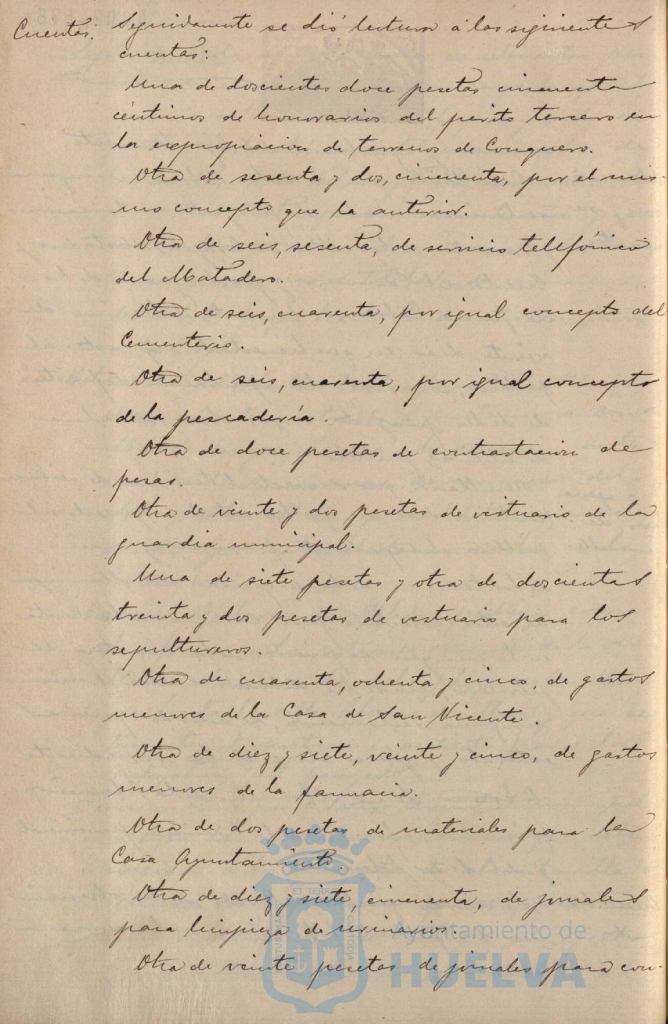 Cuentas. Seguidamente se dió lectura á las siguientes
cuentas:
Una de doscientas doce pesetas cincuenta
céntimos de honorarios del perito tercero en
la expropiacion de terrenos de Conquero.
Otra de sesenta y dos, cincuenta, por el mis-
mo concepto que la anterior.
Otra de seis, sesenta, de servicio telefónico
del Matadero.
Otra de seis, cuarenta, por igual concepto del
Cementerio.
Otra de seis, cuarenta, por igual concepto
de la pescadería.
Otra de doce pesetas de contrastacion de
pesas.
Otra de veinte y dos pesetas de vestuario de la
guardia municipal.
Una de siete pesetas y otra de doscientas
treinta y dos pesetas de vestuario para los
sepultureros.
Otra de cuarenta, ochenta y cinco, de gastos
menores de la Casa de San Vicente.
Otra de diez y siete, veinte y cinco, de gastos
menores de la farmacia.
Otra de dos pesetas de materiales para la
Casa Ayuntamiento.
Otra de diez y siete, cincuenta, de jornales
para limpieza de urinarios.
Otra de veinte pesetas de jornales para con-
Ayuntamiento de
HUELVA